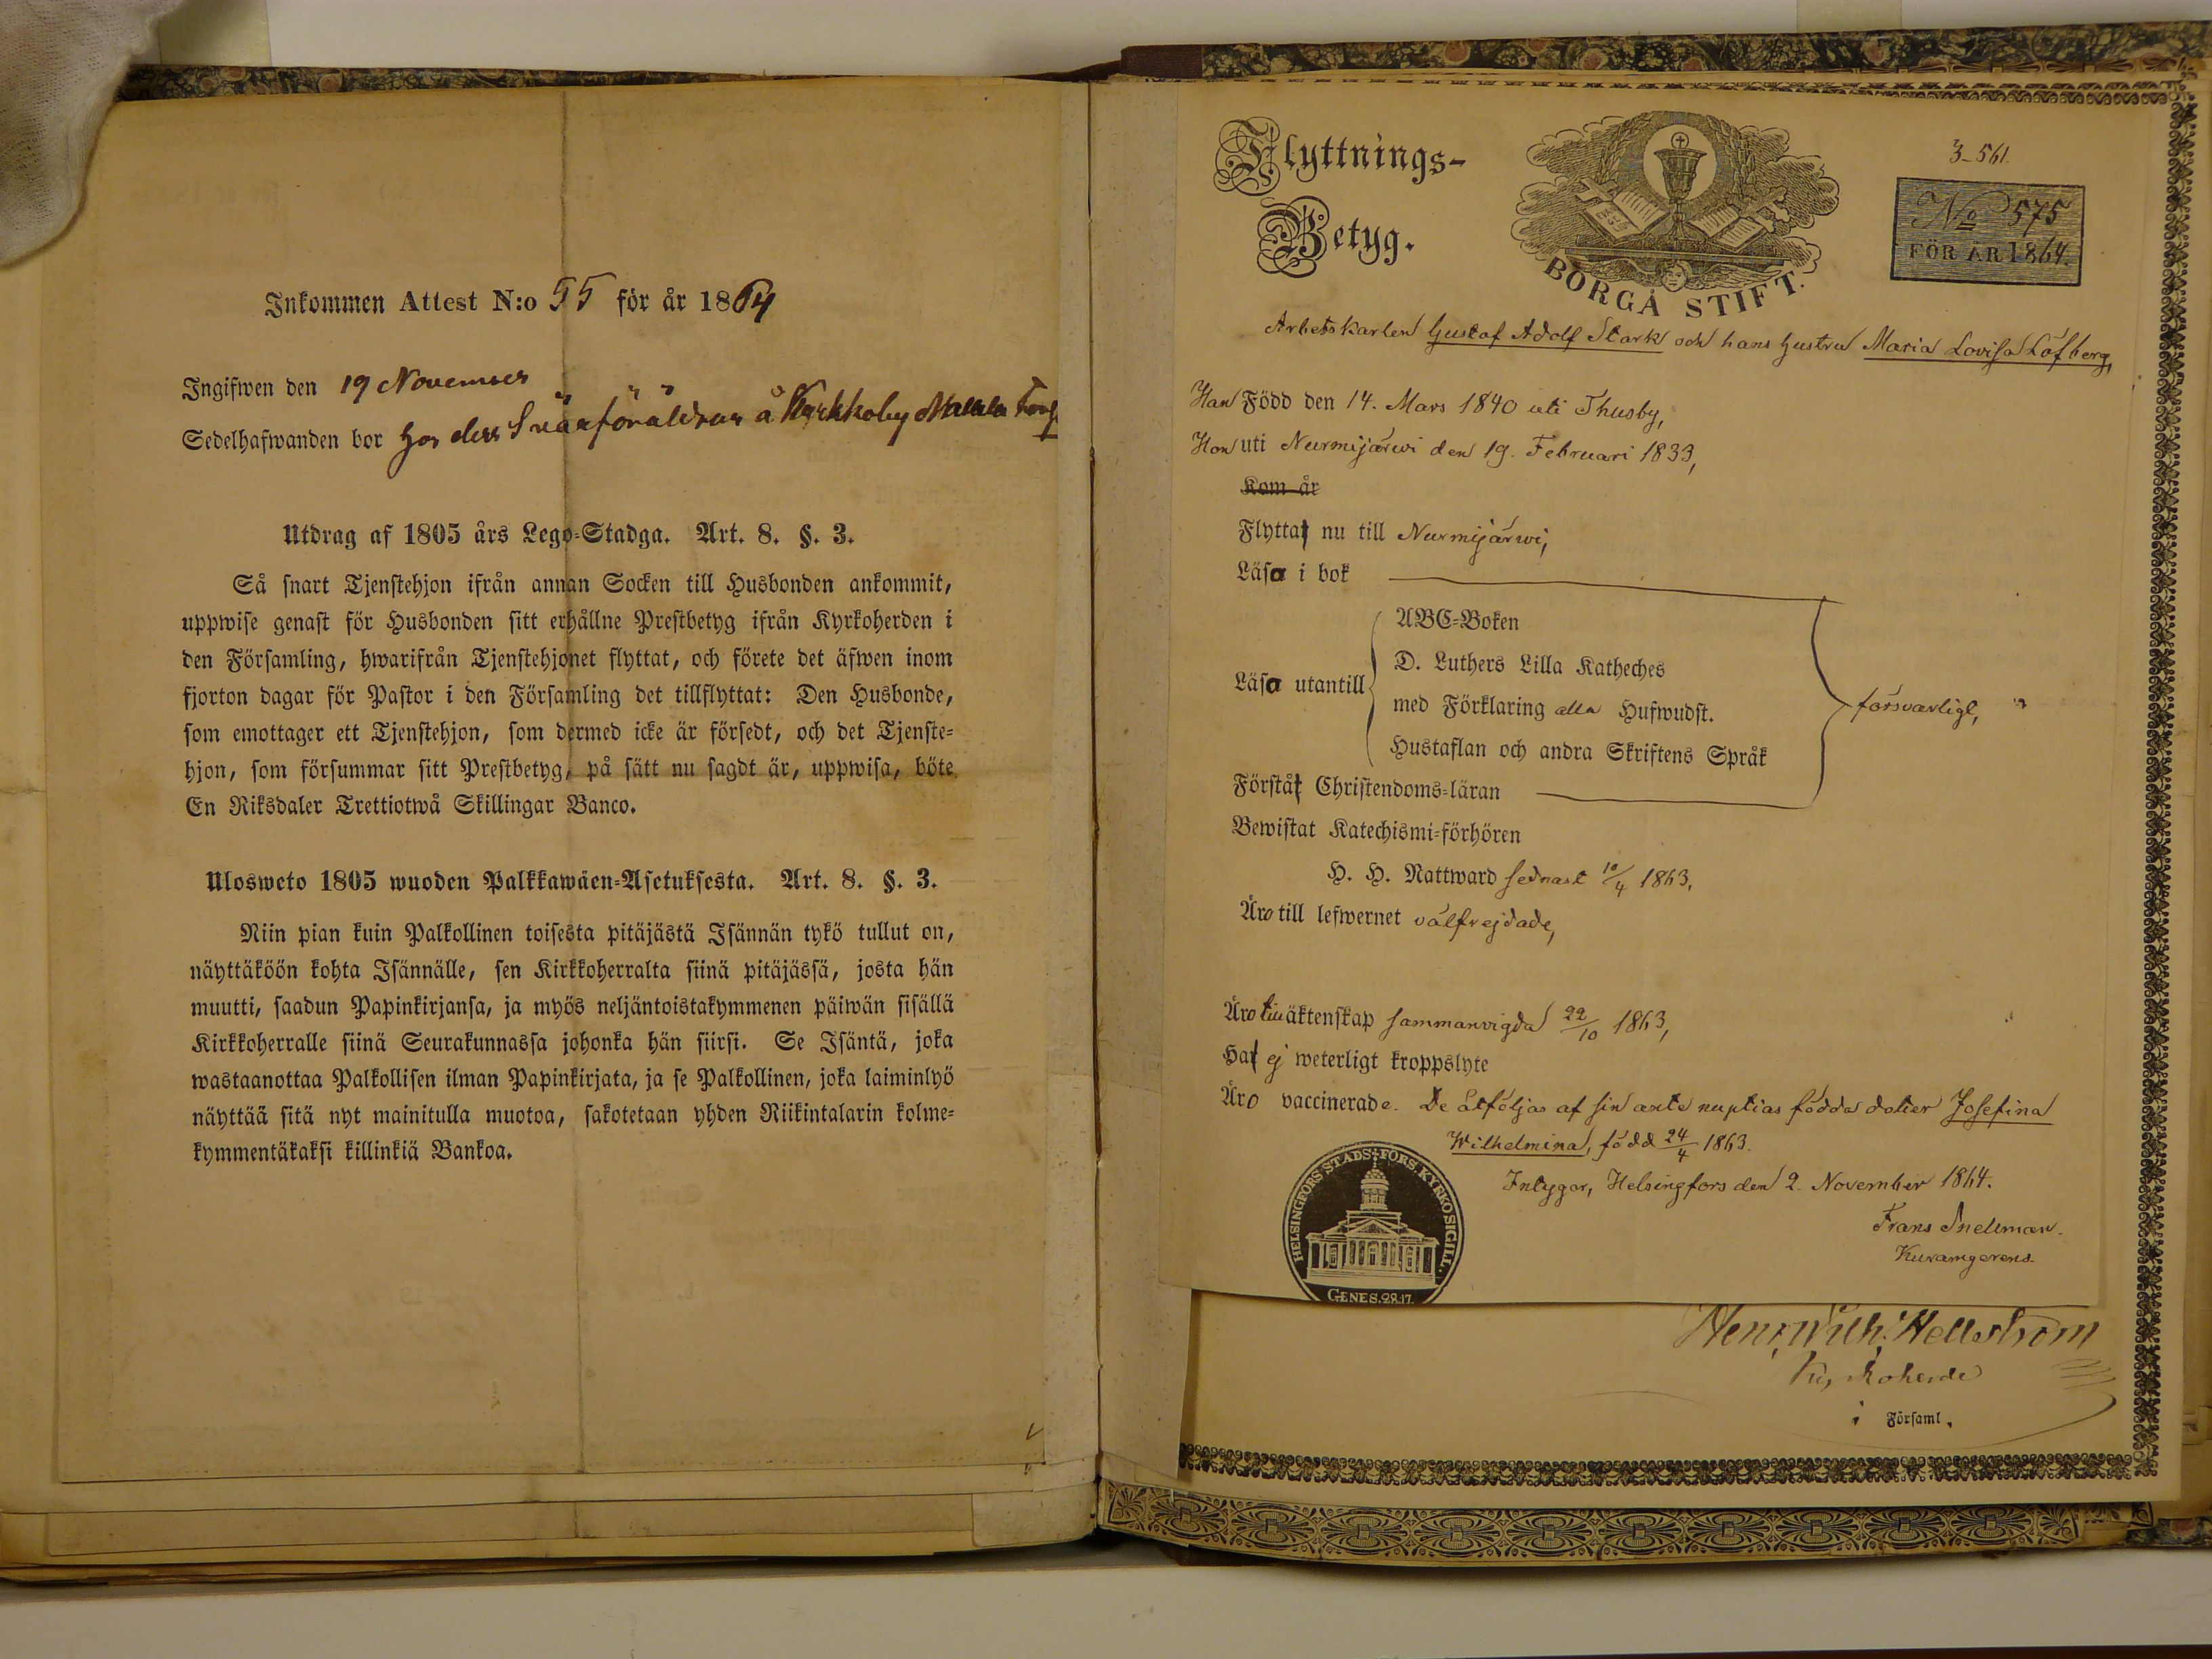 Inkommen Attest N:o 55 för år 1864
Ingifwen den 19 November
Sedelhafwanden bor hos dess Svärföräldrar å Kyrkkoby
Utdrag af 1805 års Lego-Stadga. Art. 8. §. 3.
Så snart Tjenstehjon ifrån annan Socken till Husbonden ankommit,
uppwise genast för Husbonden sitt erhållne Prestbetyg ifrån Kyrkoherden i
den Församling, hwarifrån Tjenstehjonet flyttat, och förete det äfwen inom
fjorton dagar för Pastor i den Församling det tillflyttat: Den Husbonde,
som emottager ett Tjenstehjon, som dermed icke är försedt, och det Tjenste-
hjon, som försummar sitt Prestbetyg, på sätt nu sagdt är, uppwisa, böte
En Riksdaler Trettiotwå Skillingar Banco.
Ulosweto 1805 wuoden Palkkawäen-Asetuksesta. Art. 8. §. 3.
Niin pian kuin Palkollinen toisesta pitäjästä Isännän tykö tullut on,
näyttäköön kohta Isännälle, sen Kirkkoherralta siinä pitäjässä, josta hän
muutti, saadun Papinkirjansa, ja myös neljäntoistakymmenen päiwän sisällä
Kirkkoherralle siinä Seurakunnassa johonka hän siirsi. Se Isäntä, joka
wastaanottaa Palkollisen ilman Papinkirjata, ja se Palkollinen, joka laiminlyö
näyttää sitä nyt mainitulla muotoa, sakotetaan yhden Riikintalarin kolme-
kymmentäkaksi killinkiä Bankoa.
Flyttnings-
Betyg.
BORGÅ STIFT.
3-561.
No 575
FÖR ÅR 1864.
Arbetskarlen Gustaf Adolf Stark och hans hustru Maria Lovisa Löfberg,
Han Född den 14. Mars 1840 uti Thusby,
Hon uti Nurmijärwi den 19. Februari 1833,
Kom år
Flytta nu till Nurmijärwi,
Läsa i bok
Läsa utantill
ABC-Boken
D. Luthers Lilla Katheches
med Förklaring alla Hufwudst.
Hustaflan och andra Skriftens Språk
försvarligt,
Förstå Christendoms-läran
Bewistat Katechismi-förhören
H. H. Nattward sednast 10/4 1863,
Äro till lefwernet välfrejdade,
Äro till äktenskap sammanvigda 22/10 1863,
Ha ej weterligt kroppslyte
Äro vaccinerade. De åtföljas af sin ante nuptias födda dotter Josefina
Wilhelmina, född 24/4 1863.
Intygar, Helsingfors den 2. November 1864.
Frans Snellman.
HELSINGFORS STADS FÖRS. KYRKOSIGILL.
GENES. 28.17.
Henr. Wilh. Hellström
Kyrkoherde
i Församl.